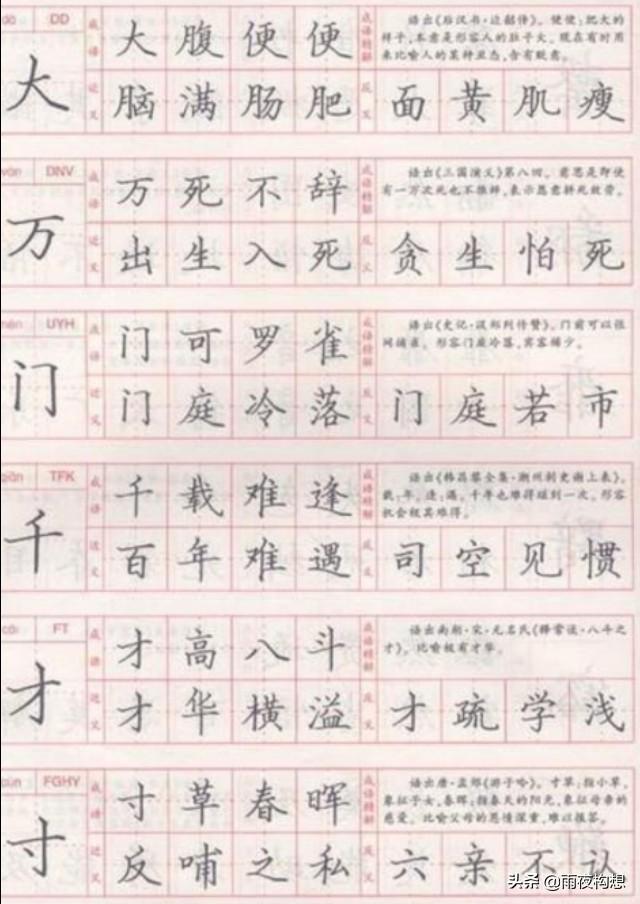 DD
大
成语
大腹便便
成语精解
语出《后汉书·边韶传》。便便：肥大的
样子，本意是形容人的肚子大。现在有时用
来比喻人的某种丑态，含有贬意。
近义
脑满肠肥
反义
面黄肌瘦
DNV
万
成语
万死不辞
成语精解
语出《三国演义》第八回。意思是即使
有一万次死也不推辞，表示愿意拼死效劳。
近义
出生入死
反义
贪生怕死
UYH
门
成语
门可罗雀
成语精解
语出《史记·汲郑列传赞》。门前可以张
网捕雀。形容门庭冷落，宾客稀少。
近义
门庭冷落
反义
门庭若市
TFK
千
成语
千载难逢
成语精解
语出《韩昌黎全集·潮州刺史谢上表》。
载：年。逢：遇。千年也难得碰到一次，形容
机会极其难得。
近义
百年难遇
反义
司空见惯
FT
才
成语
才高八斗
成语精解
语出南朝·宋·无名氏《释常谈·八斗之
才》。比喻极有才华。
近义
才华横溢
反义
才疏学浅
FGHY
寸
成语
寸草春晖
成语精解
语出唐·孟郊《游子吟》。寸草：指小草，
象征子女。春晖：指春天的阳光，象征母亲的
慈爱。比喻父母的恩情深重，难以报答。
近义
反哺之私
反义
六亲不认
头条 @雨夜构想